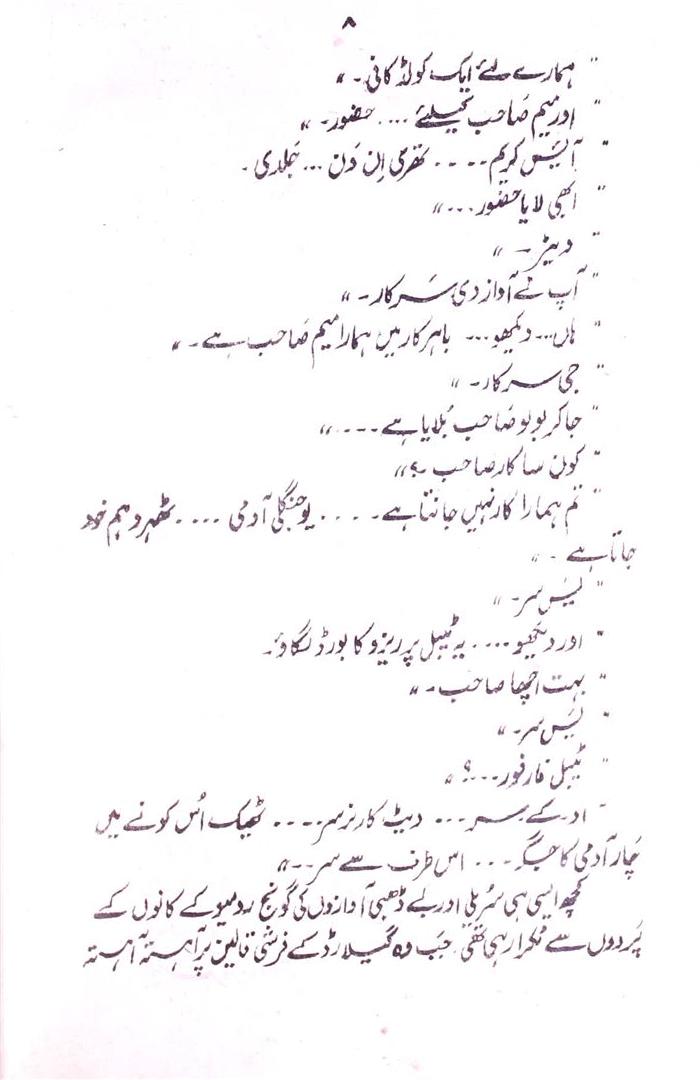 ۸
" ہمارے لئے ایک کولڈ کافی۔ "
" اور میم صاحب کیلئے .... حضور۔ "
" آئیس کریم .... تھری اِن وَن ... جَلدی۔
" ابھی لایا حضور ... "
" ویٹر۔ "
" آپ نے آواز دی سَرکار۔ "
" ہاں ... دیکھو ... باہر کار میں ہمارا میم صَاحب ہے۔ "
" جی سرکار۔ "
" جا کر بولو صَاحب بُلایا ہے .... "
" کون سا کار صَاحب ۔؟ "
" تم ہمارا کار نہیں جانتا ہے .... یو جنگلی آدمی .... ٹھہرو ہم خود
جاتا ہے ۔ "
" یَس سر۔ "
" اور دیکھیو .... یہ ٹیبل پر ریزو کا بورڈ لگاؤ۔
" بہت اچھا صاحب۔ "
" یَس سر۔ "
" ٹیبل فار فور ...؟ "
" او۔ کے سر ... دیٹ کارنر سر .... ٹھیک اُس کونے میں
چَار آدمی کا جگہ ... اس طرف سے سر ... "
کچھ ایسی ہی سُریلی اور بے ڈھبی آوازوں کی گونج رومیو کے کانوں کے
پَردوں سے ٹکرا رہی تھی جَب وہ گیلارڈ کے فرشی قالین پر آہستہ آہستہ